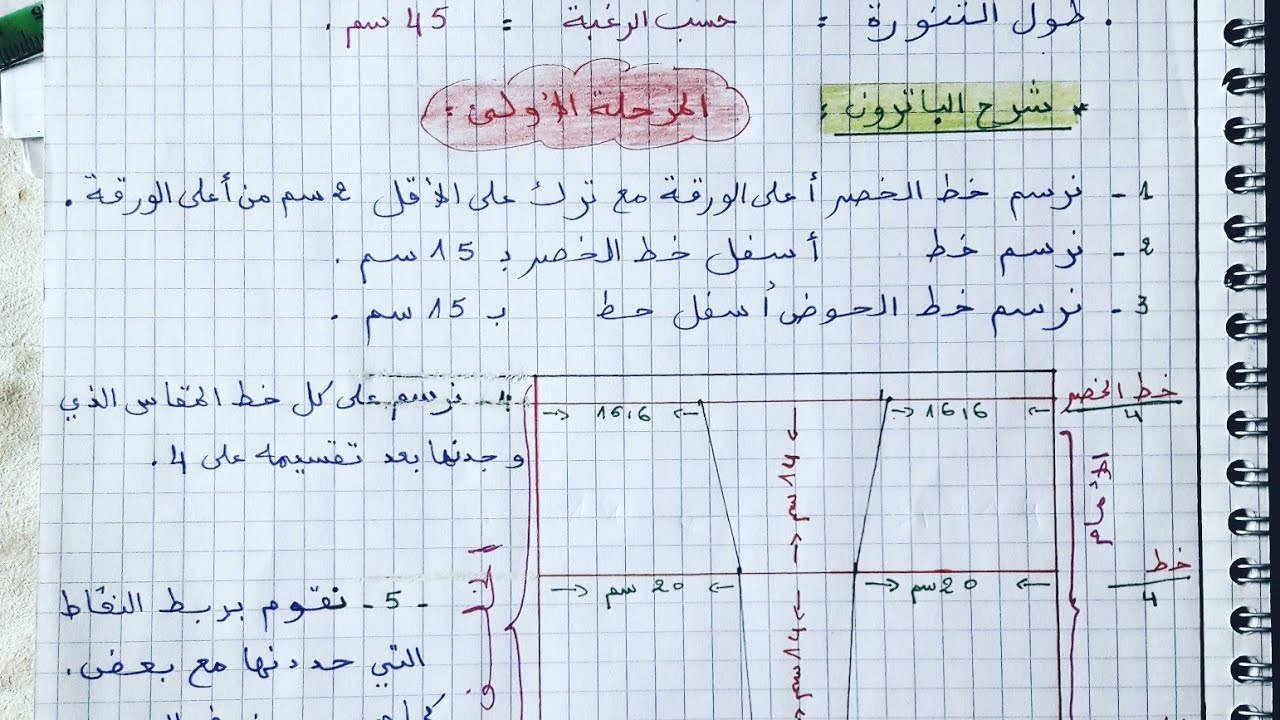 . طول التنورة : حسب الرغبة : 45 سم .
* شرح الباترون :
المرحلة الأولى :
1 - نرسم خط الخصر أعلى الورقة مع ترك على الأقل 2 سم من أعلى الورقة .
2 - نرسم خط أسفل خط الخصر بـ 15 سم .
3 - نرسم خط الحوض أسفل خط بـ 15 سم .
4 - نرسم على كل خط المقاس الذي
وجدنها بعد تقسيمه على 4 .
- 5 - نقوم بربط النقاط
التي حددنها مع بعض .
خط الخصر
4
16,6
15,6
14 سم
الأمام
خط
4
20 سم
20 سم
14 سم